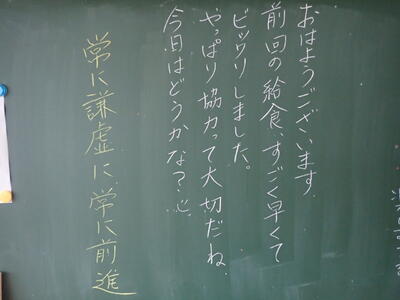 おはようございます.
前回の給食、すごく早くて
ビックリしました。
やっぱり協力って大切だね.
今日はどうかな？
常に謙虚に、常に前進